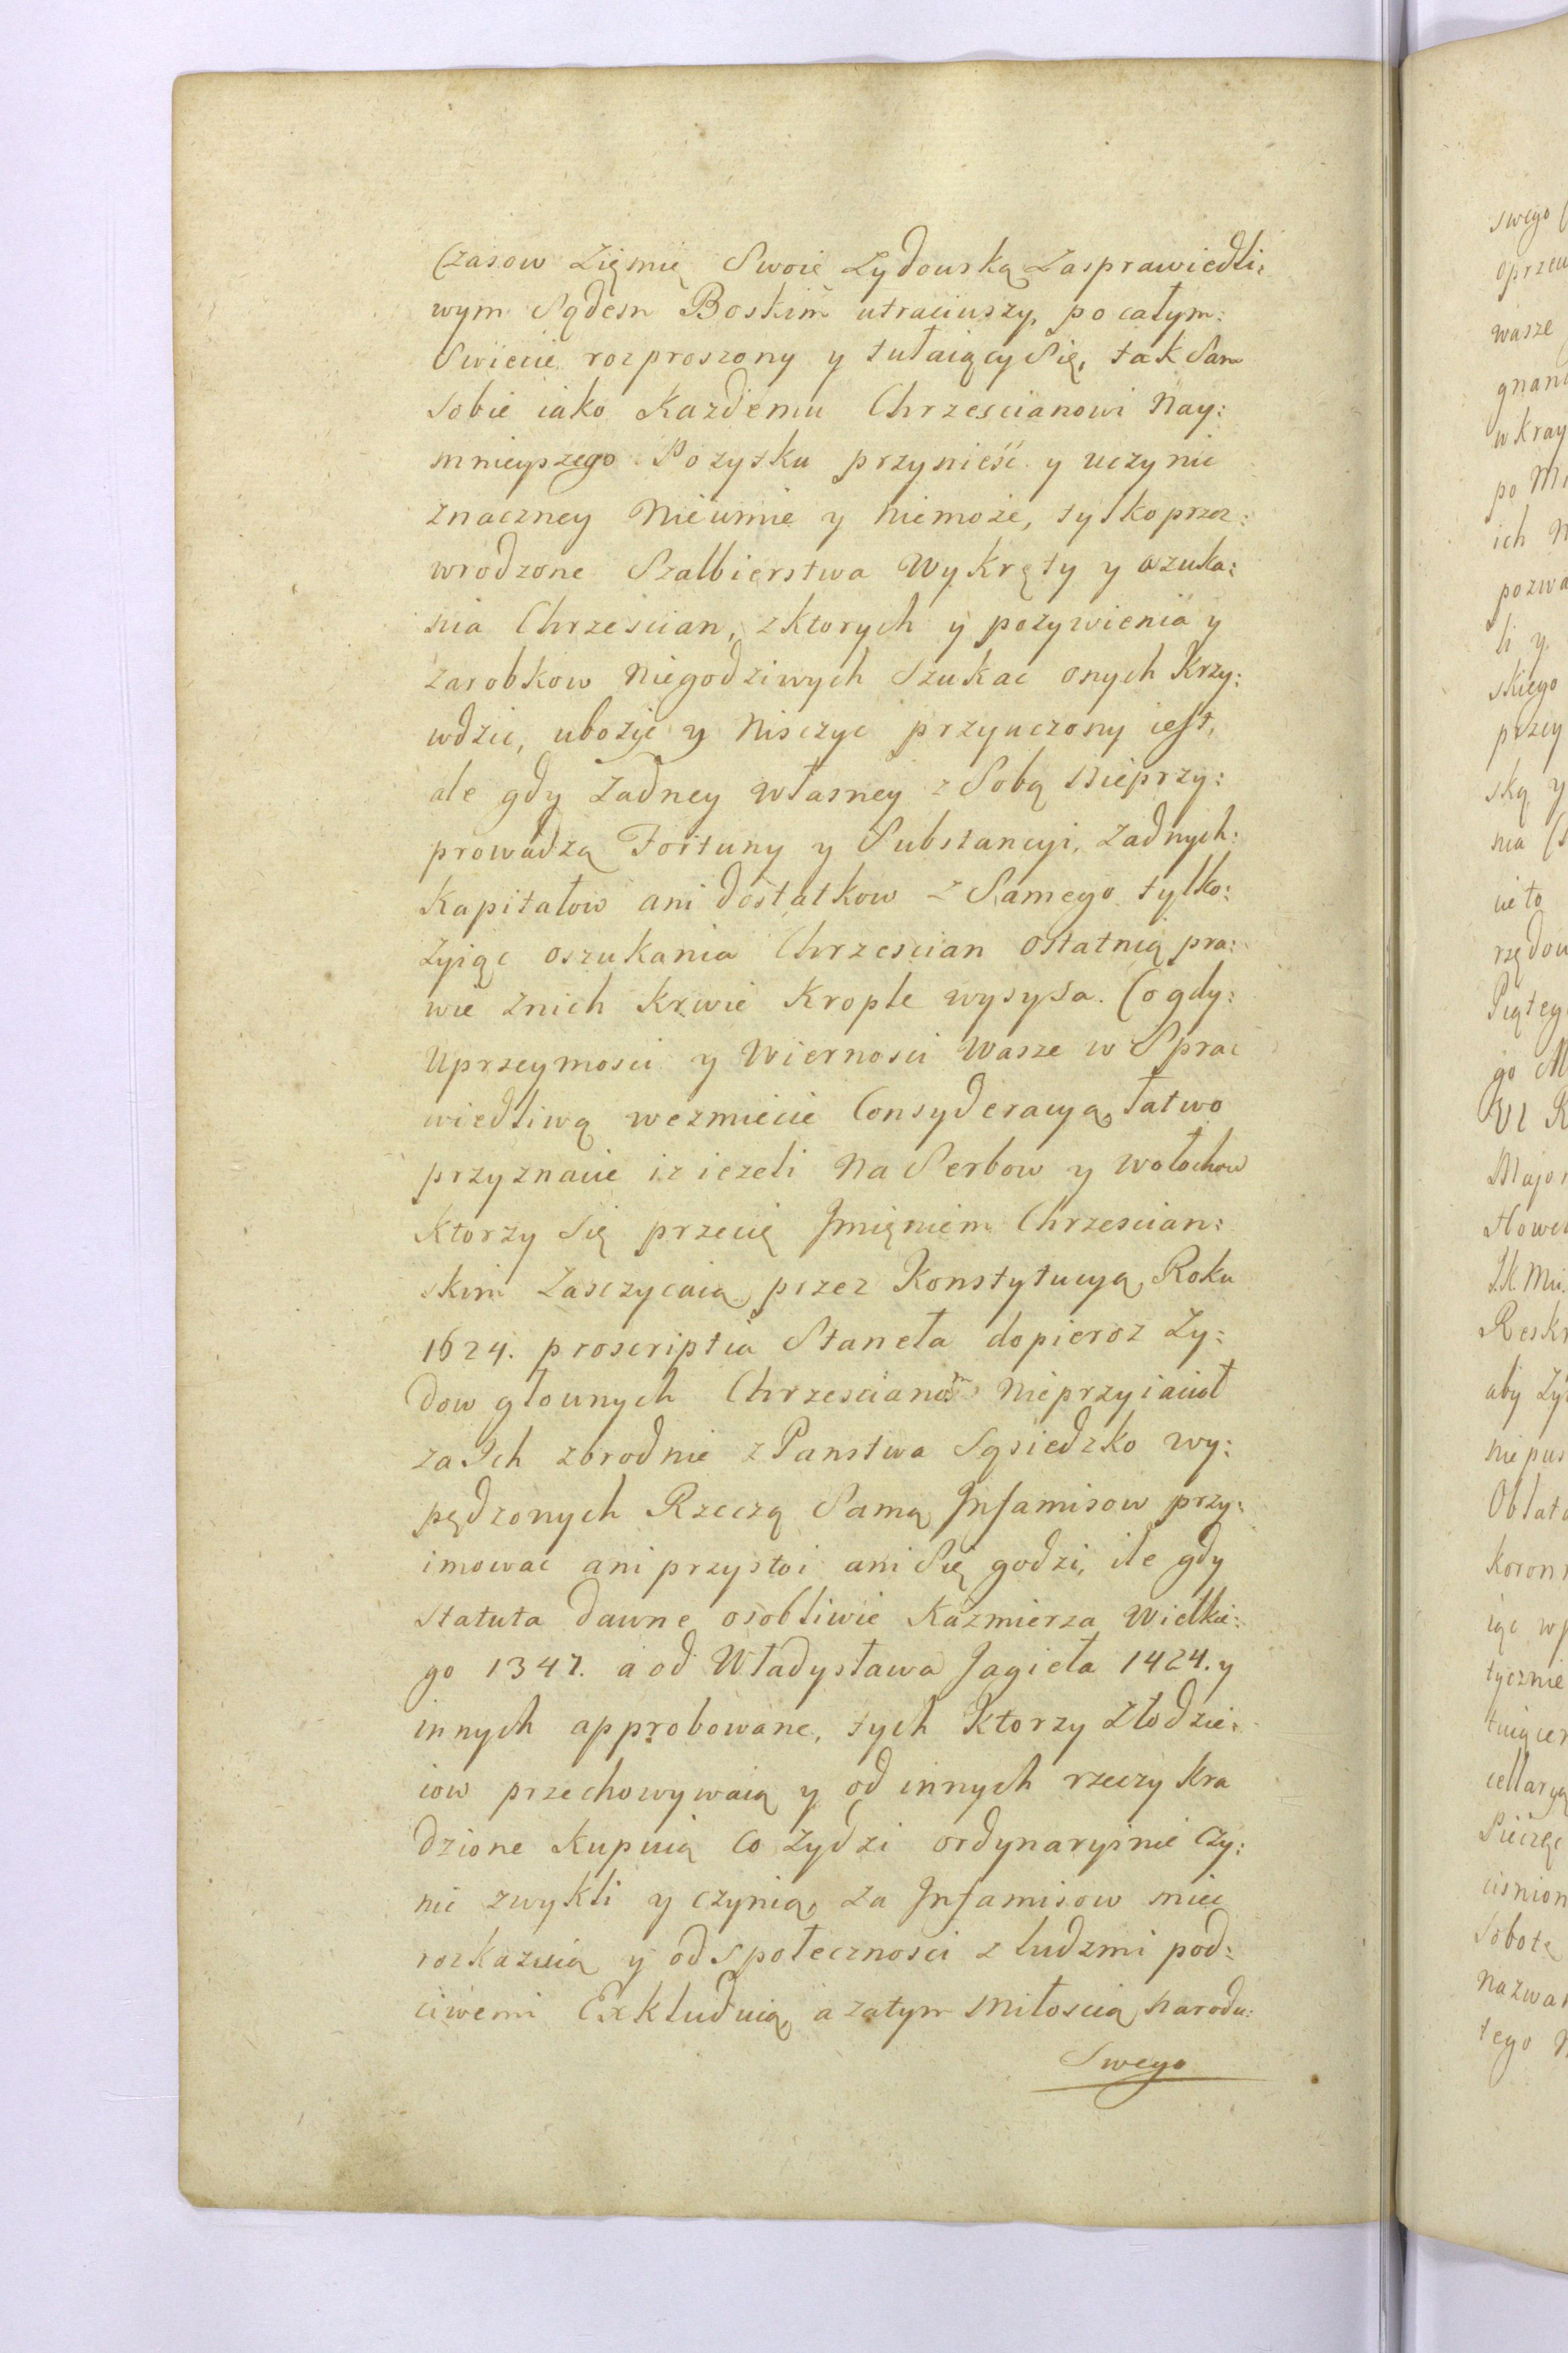 Czasow Zięmię Swoię Zydowską Zasprawiedli:
wym Sądem Boskim utraciwszy, po całym:
Swiecie rozproszony y tułaiący Się, tak Sam
Sobie iako Kazdemu Chrzescianowi Nay:
mnieyszego Pozysku przynieść y uczynic
znaczney Nieumie y niemoże, tylko przez:
wrodzone Szalbierstwa Wykręty y oszuka:
nia Chrzescian, z Ktorych y pozywienia y
zarobkow Niegodziwych Szukac onych Krzy:
wdzic, ubozyc y Nisczyc przyuczony iest,
ale gdy Zadney własney z Sobą Nieprzy:
prowadzą Fortuny y Substancyi, Zadnych:
Kapitałow ani dostatkow z Samego tylko:
Zyiąc oszukania Chrzescian Ostatnią pra:
wie Znich Krwie Krople wysysa. Co gdy:
Uprzeymosci y Wiernosci Wasze w Spra
wiedliwą wezmiecie Consyderacyą, łatwo
przyznacie iz iezeli Na Serbow y Wołochow
Ktorzy Się przecię Jmięniem Chrzescian:
skim Zasczycaią, przez Konstytucyą Roku
1624. proscriptia Staneła dopieroz Zy:
dow głownych Chrzescianom Nieprzyiacioł
za Ich zbrodnie z Panstwa Sąsiedzko wy:
pędzonych Rzeczą Samą Jnfamisow przy:
imowac ani przystoi ani Się godzi, ile gdy
Statuta dawne osobliwie Kazmierza Wielkie:
go 1347. a od Władysława Jagieła 1424. y
innych approbowane, tych Ktorzy Złodzie:
iow przechowywaią y od innych rzeczy Kra
dzione Kupuią Co Zydzi ordynaryinie Czy:
nic zwykli y czynią, Za Jnfamisow miec
rozkazuią y od społecznosci z ludzmi pod:
ciwemi Exkluduią, a zatym Miłoscią Narodu:
Swego
swego
oprzew
wasze
gnani
w Kray
po
ich
pozwa
li y
skiego
przey
ską y
nia
cie to
rzędow
Piąteg
go
VI
Major
Słowe
Reskr
aby Zy
nie pus
Oblata
Koronn
iąc wp
tycznie
tuiącer
cellaryą
Pieczęc
cisnion
Sobotę
Nazwan
tego